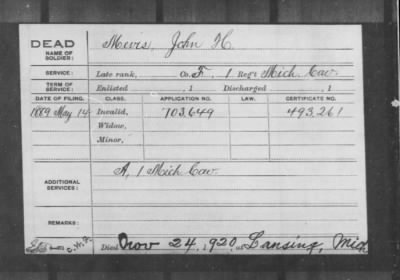 DEAD
NAME OF SOLDIER:
Mevis, John H.
SERVICE:
Late rank, Co. F, 1 Reg't Mich. Cav.
TERM OF SERVICE:
Enlisted , 1 Discharged , 1
DATE OF FILING. CLASS. APPLICATION NO. LAW. CERTIFICATE NO.
May 14 Invalid, 703,649 493,261
Widow,
Minor,
ADDITIONAL SERVICES:
A, 1 Mich Cav.
REMARKS:
Died Nov 24, 1920, at Lansing, Mich